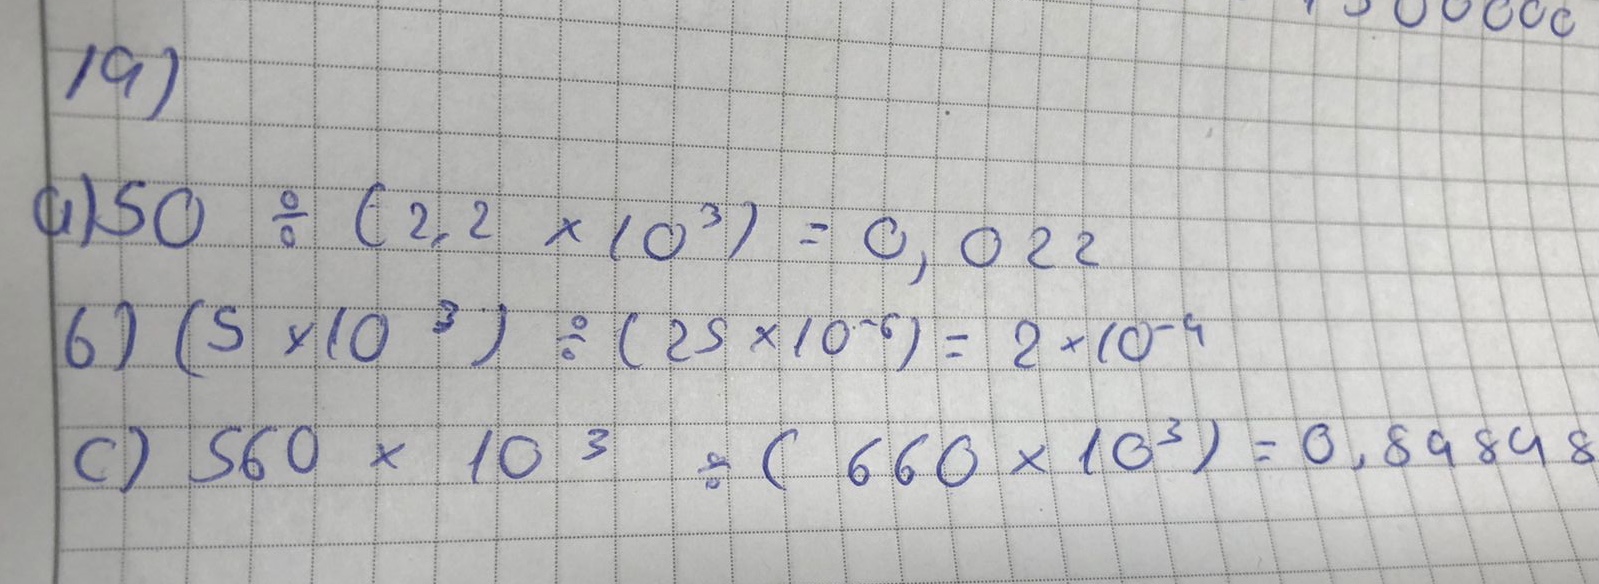 1500000
19)
a) 50 ÷ (2,2 × 10³) = 0,022
б) (5 × 10³) ÷ (25 × 10⁻⁶) = 2 × 10⁻⁴
c) 560 × 10³ ÷ (660 × 10³) = 0,84848